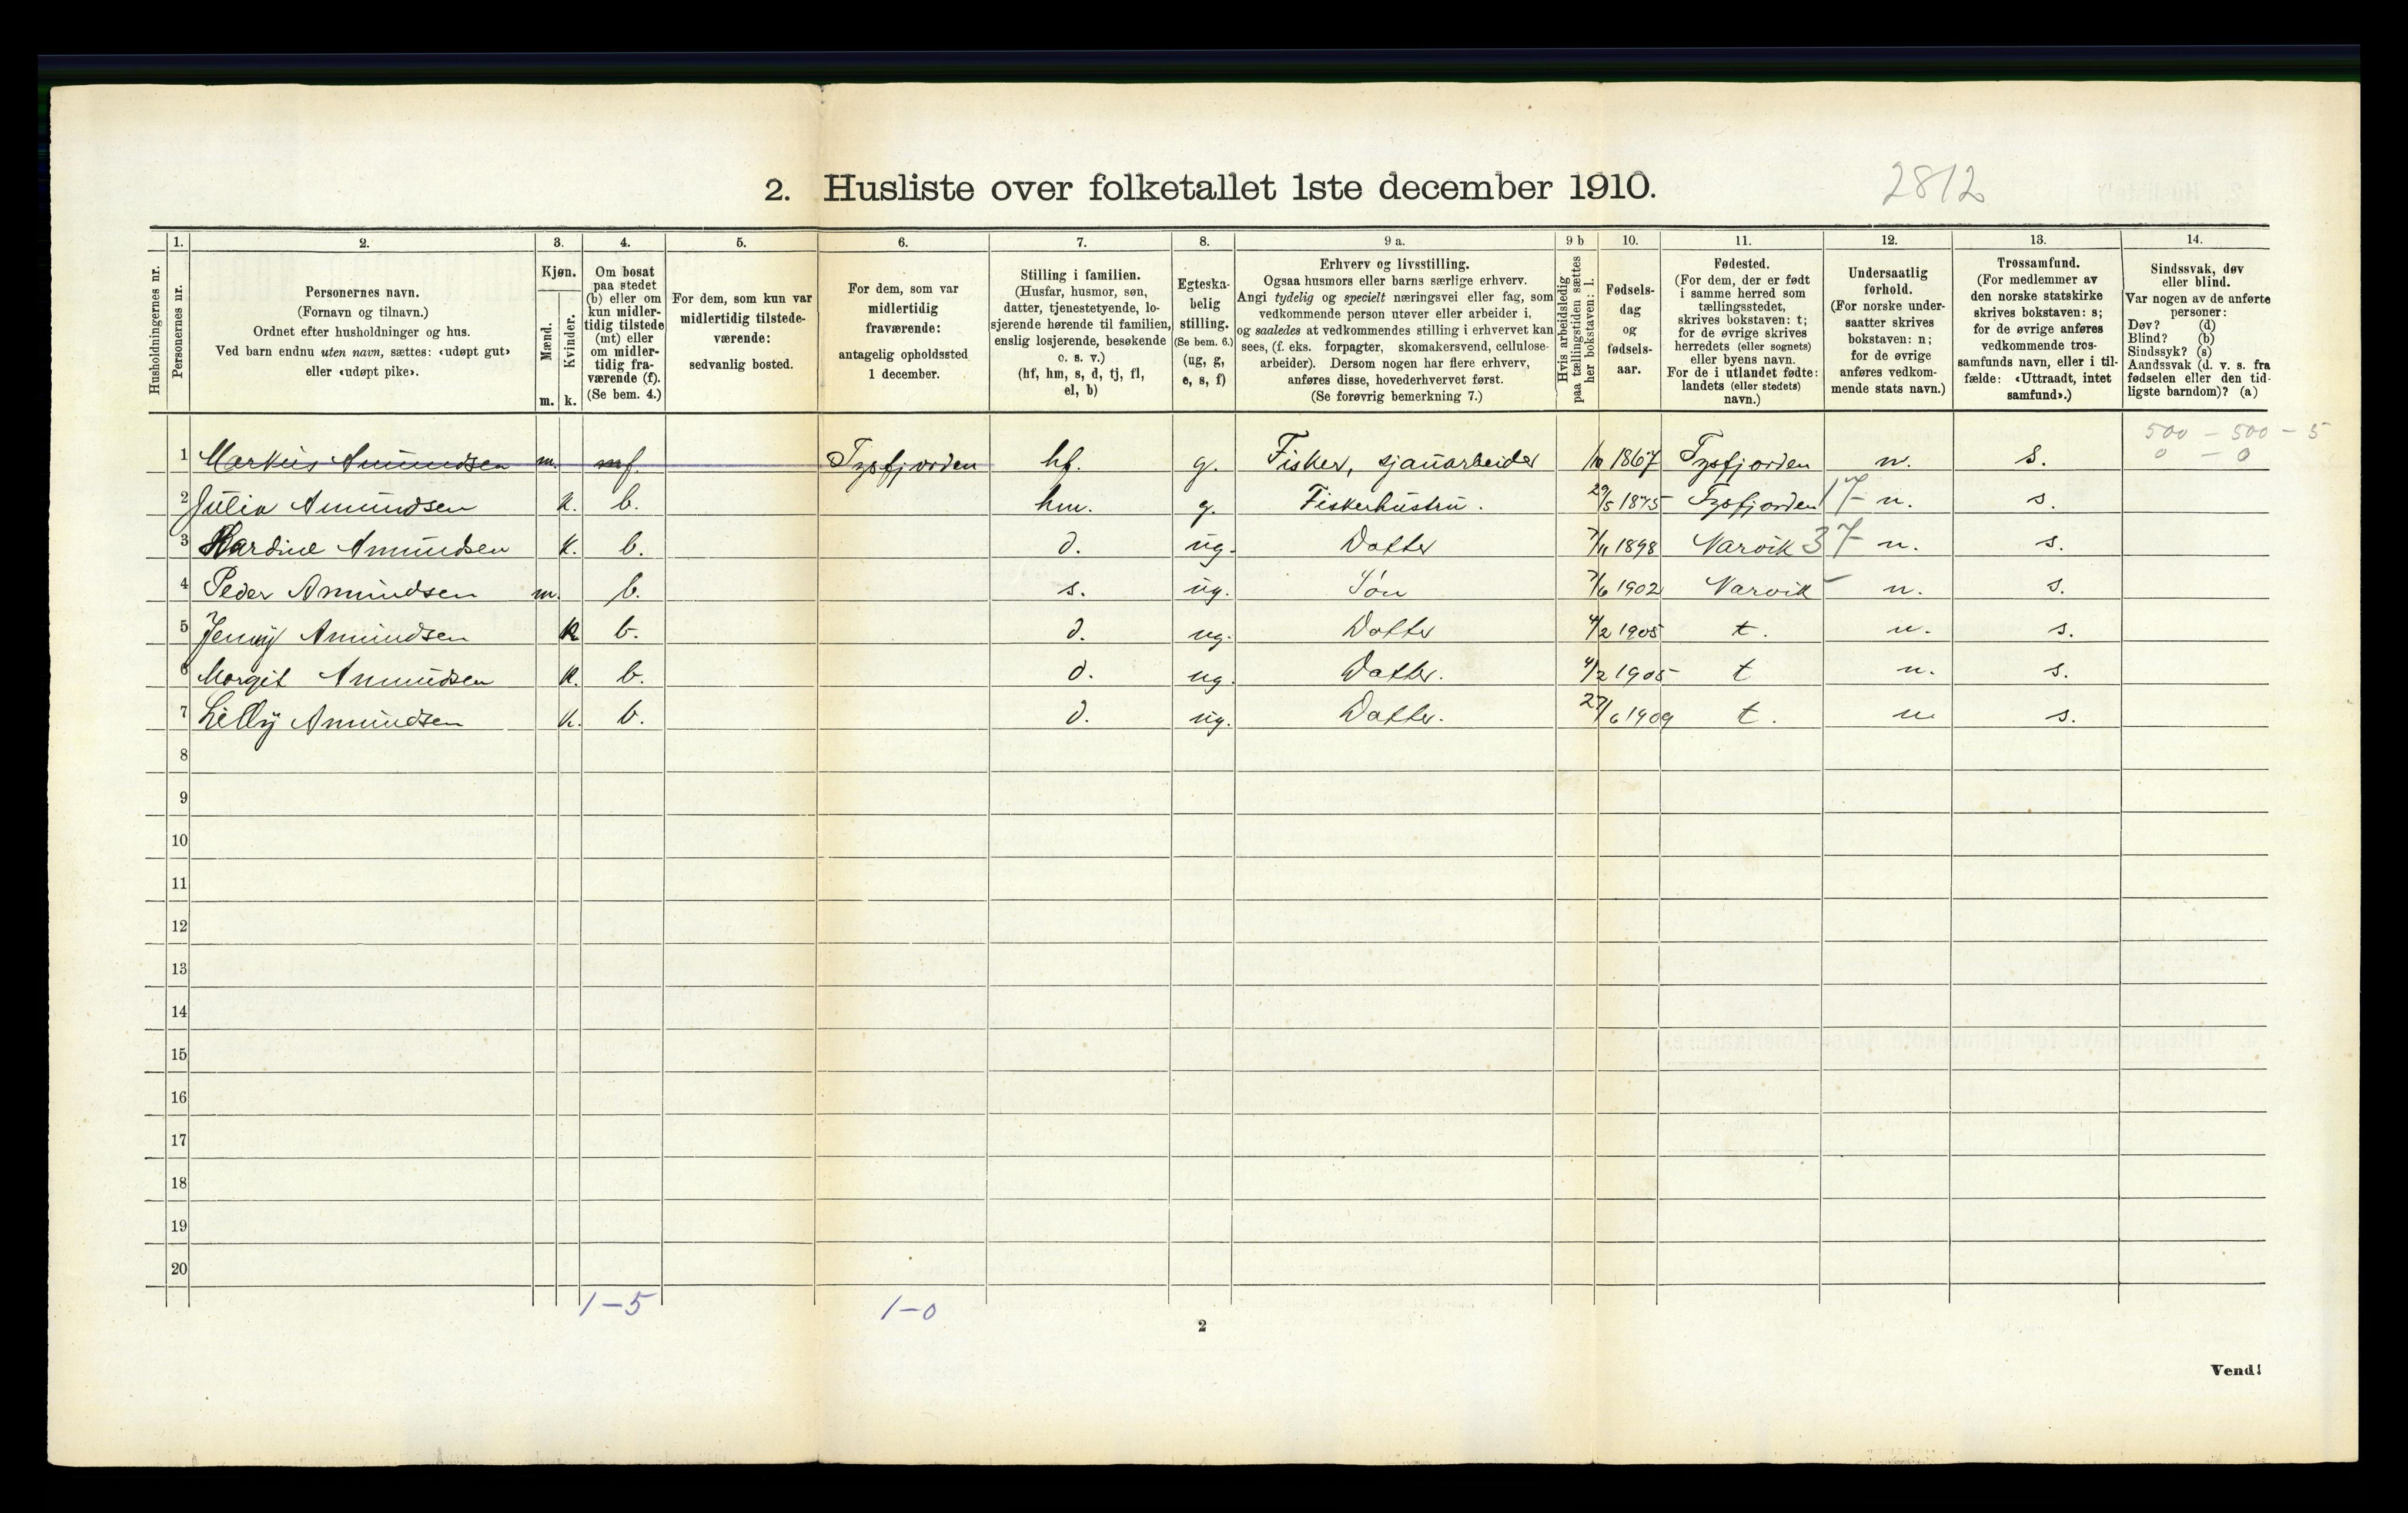 2. Husliste over folketallet 1ste december 1910.
2812
1. 2. 3. 4. 5. 6. 7. 8. 9 a. 9 b 10. 11. 12. 13. 14.
Husholdningernes nr.
Personernes nr.
Personernes navn.
(Fornavn og tilnavn.)
Ordnet efter husholdninger og hus.
Ved barn endnu uten navn, sættes: «udøpt gut»
eller «udøpt pike».
Kjøn.
Mænd.
Kvinder.
m. k.
Om bosat
paa stedet
(b) eller om
kun midler-
tidig tilstede
(mt) eller
om midler-
tidig fra-
værende (f).
(Se bem. 4.)
For dem, som kun var
midlertidig tilstede-
værende:
sedvanlig bosted.
For dem, som var
midlertidig
fraværende:
antagelig opholdssted
1 december.
Stilling i familien.
(Husfar, husmor, søn,
datter, tjenestetyende, lo-
sjerende hørende til familien,
enslig losjerende, besøkende
o. s. v.)
(hf, hm, s, d, tj, fl,
el, b)
Egteska-
belig
stilling.
(Se bem. 6.)
(ug, g,
e, s, f)
Erhverv og livsstilling.
Ogsaa husmors eller barns særlige erhverv.
Angi tydelig og specielt næringsvei eller fag, som
vedkommende person utøver eller arbeider i,
og saaledes at vedkommendes stilling i erhvervet kan
sees, (f. eks. forpagter, skomakersvend, cellulose-
arbeider). Dersom nogen har flere erhverv,
anføres disse, hovederhvervet først.
(Se forøvrig bemerkning 7.)
Hvis arbeidsledig
paa tællingstiden sættes
her bokstaven: l.
Fødsels-
dag
og
fødsels-
aar.
Fødested.
(For dem, der er født
i samme herred som
tællingsstedet,
skrives bokstaven: t;
for de øvrige skrives
herredets (eller sognets)
eller byens navn.
For de i utlandet fødte:
landets (eller stedets)
navn.)
Undersaatlig
forhold.
(For norske under-
saatter skrives
bokstaven: n;
for de øvrige
anføres vedkom-
mende stats navn.)
Trossamfund.
(For medlemmer av
den norske statskirke
skrives bokstaven: s;
for de øvrige anføres
vedkommende tros-
samfunds navn, eller i til-
fælde: «Uttraadt, intet
samfund».)
Sindssvak, døv
eller blind.
Var nogen av de anførte
personer:
Døv? (d)
Blind? (b)
Sindssyk? (s)
Aandssvak (d. v. s. fra
fødselen eller den tid-
ligste barndom)? (a)
500 - 500 - 5
0 - 0
1 Markus Amundsen m. f. Tysfjorden hf. g. Fisker, sjauarbeider 1/10 1867 Tysfjorden n. s.
2 Julia Amundsen k. b. hm. g. Fiskerhustru. 29/5 1875 Tysfjorden 17- n. s.
3 Hardine Amundsen k. b. d. ug. Datter 7/11 1898 Narvik 37 n. s.
4 Peder Amundsen m. b. s. ug. Søn 7/6 1902 Narvik n. s.
5 Jenny Amundsen k b. d. ug. Datter 4/2 1905 t. n. s.
6 Margit Amundsen k. b. d. ug. Datter. 4/2 1905 t n. s.
7 Lilly Amundsen k. b. d. ug. Datter. 27/6 1909 t. n s.
8
9
10
11
12
13
14
15
16
17
18
19
20
1-5 1-0
2
Vend!